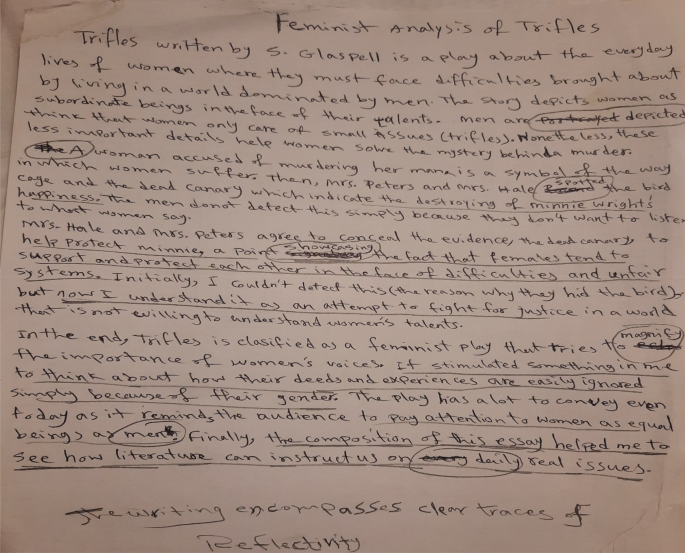 Feminist Analysis of Trifles
Trifles written by S. Glaspell is a play about the everyday
lives of women where they must face difficulties brought about
by living in a world dominated by men. The story depicts women as
subordinate beings in the face of their talents. Men are portrayed depicted
think that women only care of small assues (trifles). Nonetheless, these
less important details help women solve the mystery behind a murder.
The A woman accused of murdering her mane is a symbol of the way
in which women suffer. Then, Mrs. Peters and Mrs. Hale spotted the bird
cage and the dead canary which indicate the destroying of minnie wright's
happiness. The men donot detect this simply because they don't want to listen
to what women say.
Mrs. Hale and Mrs. Peters agree to conceal the evidence, the dead canary, to
help protect minnie, a point showcasing the fact that females tend to
support and protect each other in the face of difficulties and unfair
systems. Initially, I couldn't detect this (the reason why they hid the bird),
but now I understand it as an attempt to fight for justice in a world
that is not willing to understand women's talents.
In the end, Trifles is clasified as a feminist play that tries to magnify
the importance of women's voices. It stimulated something in me
to think about how their deeds and experiences are easily ignored
simply because of their gender. The play has a lot to convey even
today as it reminds the audience to pay attention to women as equal
beings as men. Finally, the composition of this essay helped me to
see how literature can instruct us on daily real issues.
The writing encompasses clear traces of
Reflectivity